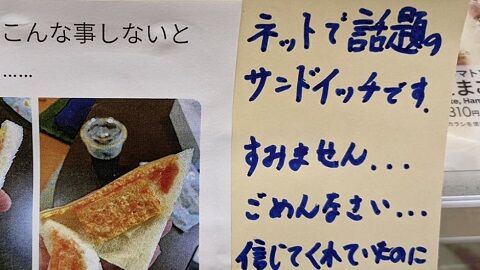 こんな事しないと
……
ネットで話題の
サンドイッチです。
すみません...
ごめんなさい...
信じてくれていたのに
マト
たまご
ke, Ham
310円
カラシを使